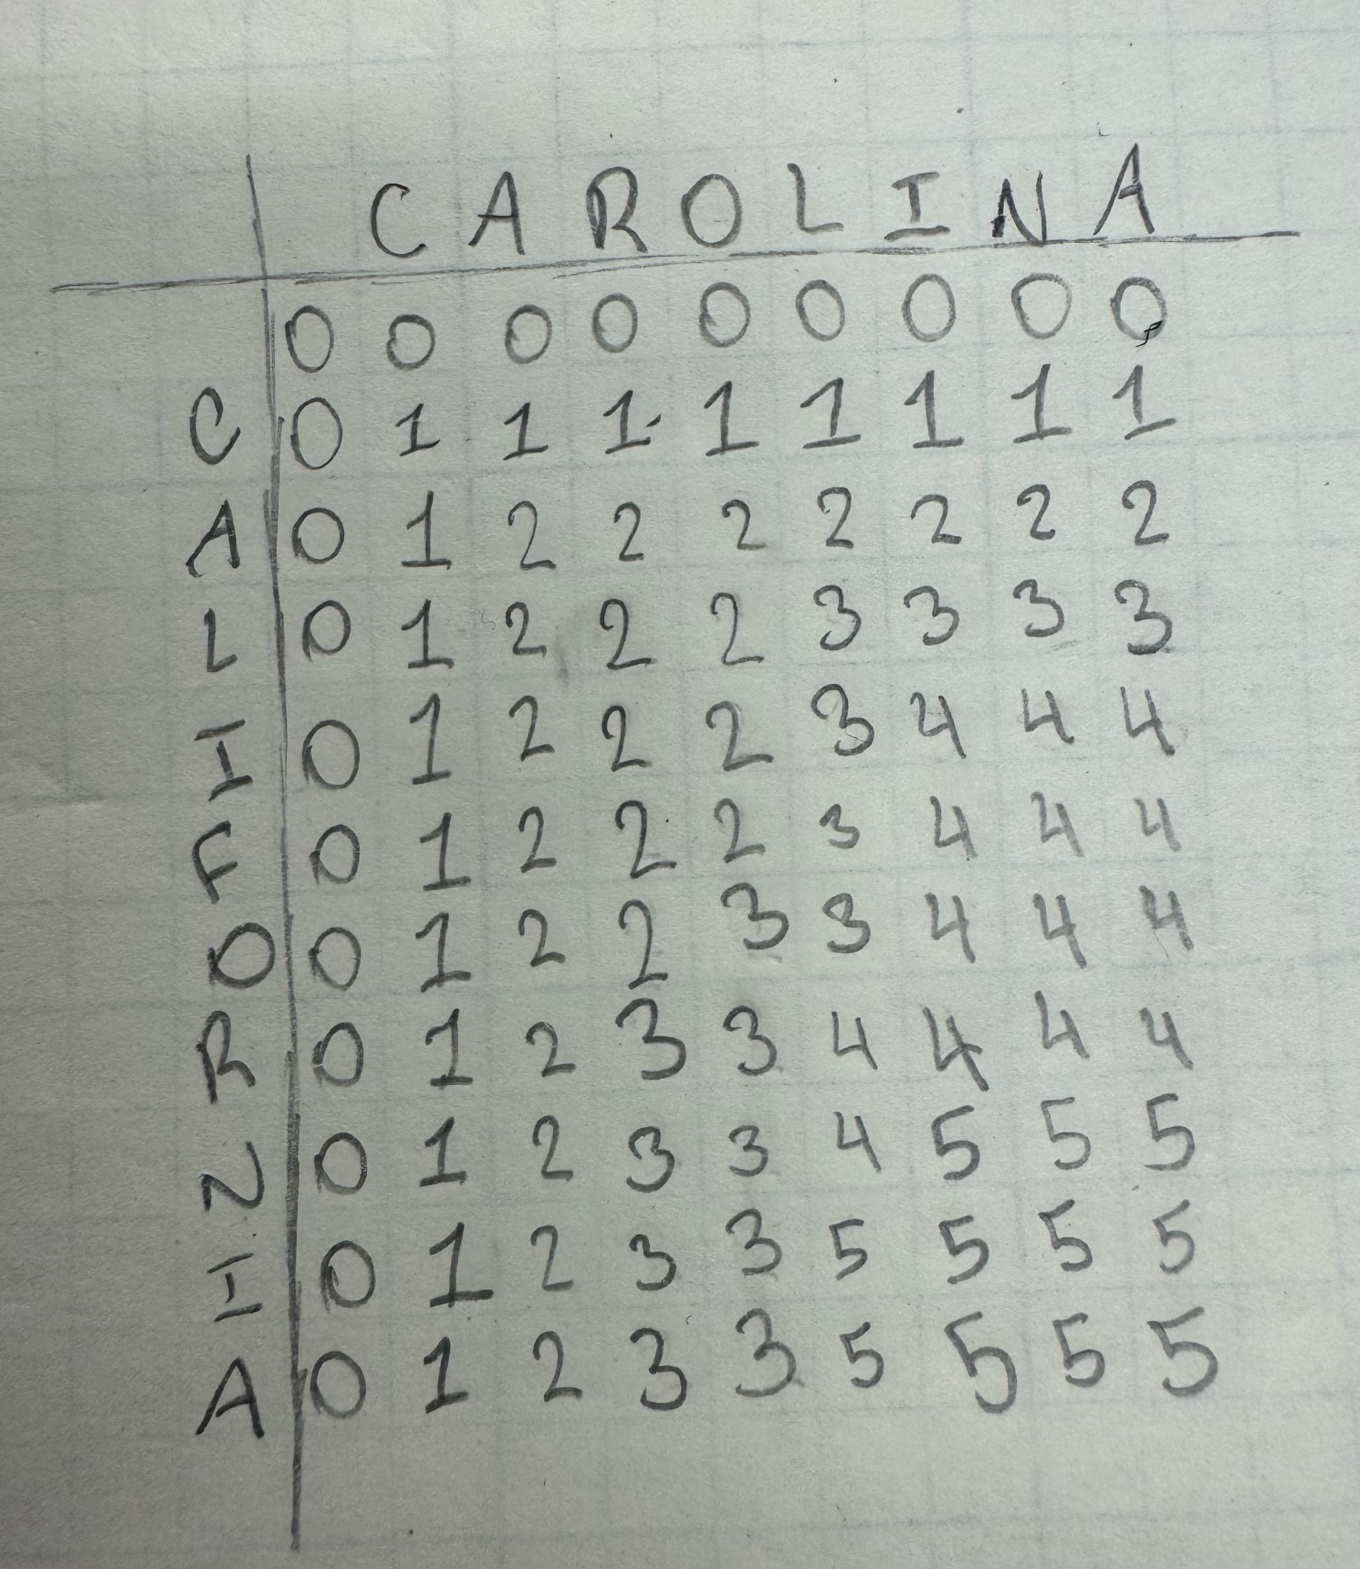 C A R O L I N A
0 0 0 0 0 0 0 0 0
C 0 1 1 1 1 1 1 1 1
A 0 1 2 2 2 2 2 2 2
L 0 1 2 2 2 3 3 3 3
I 0 1 2 2 2 3 4 4 4
F 0 1 2 2 2 3 4 4 4
O 0 1 2 2 3 3 4 4 4
R 0 1 2 3 3 4 4 4 4
N 0 1 2 3 3 4 5 5 5
I 0 1 2 3 3 5 5 5 5
A 0 1 2 3 3 5 5 5 5